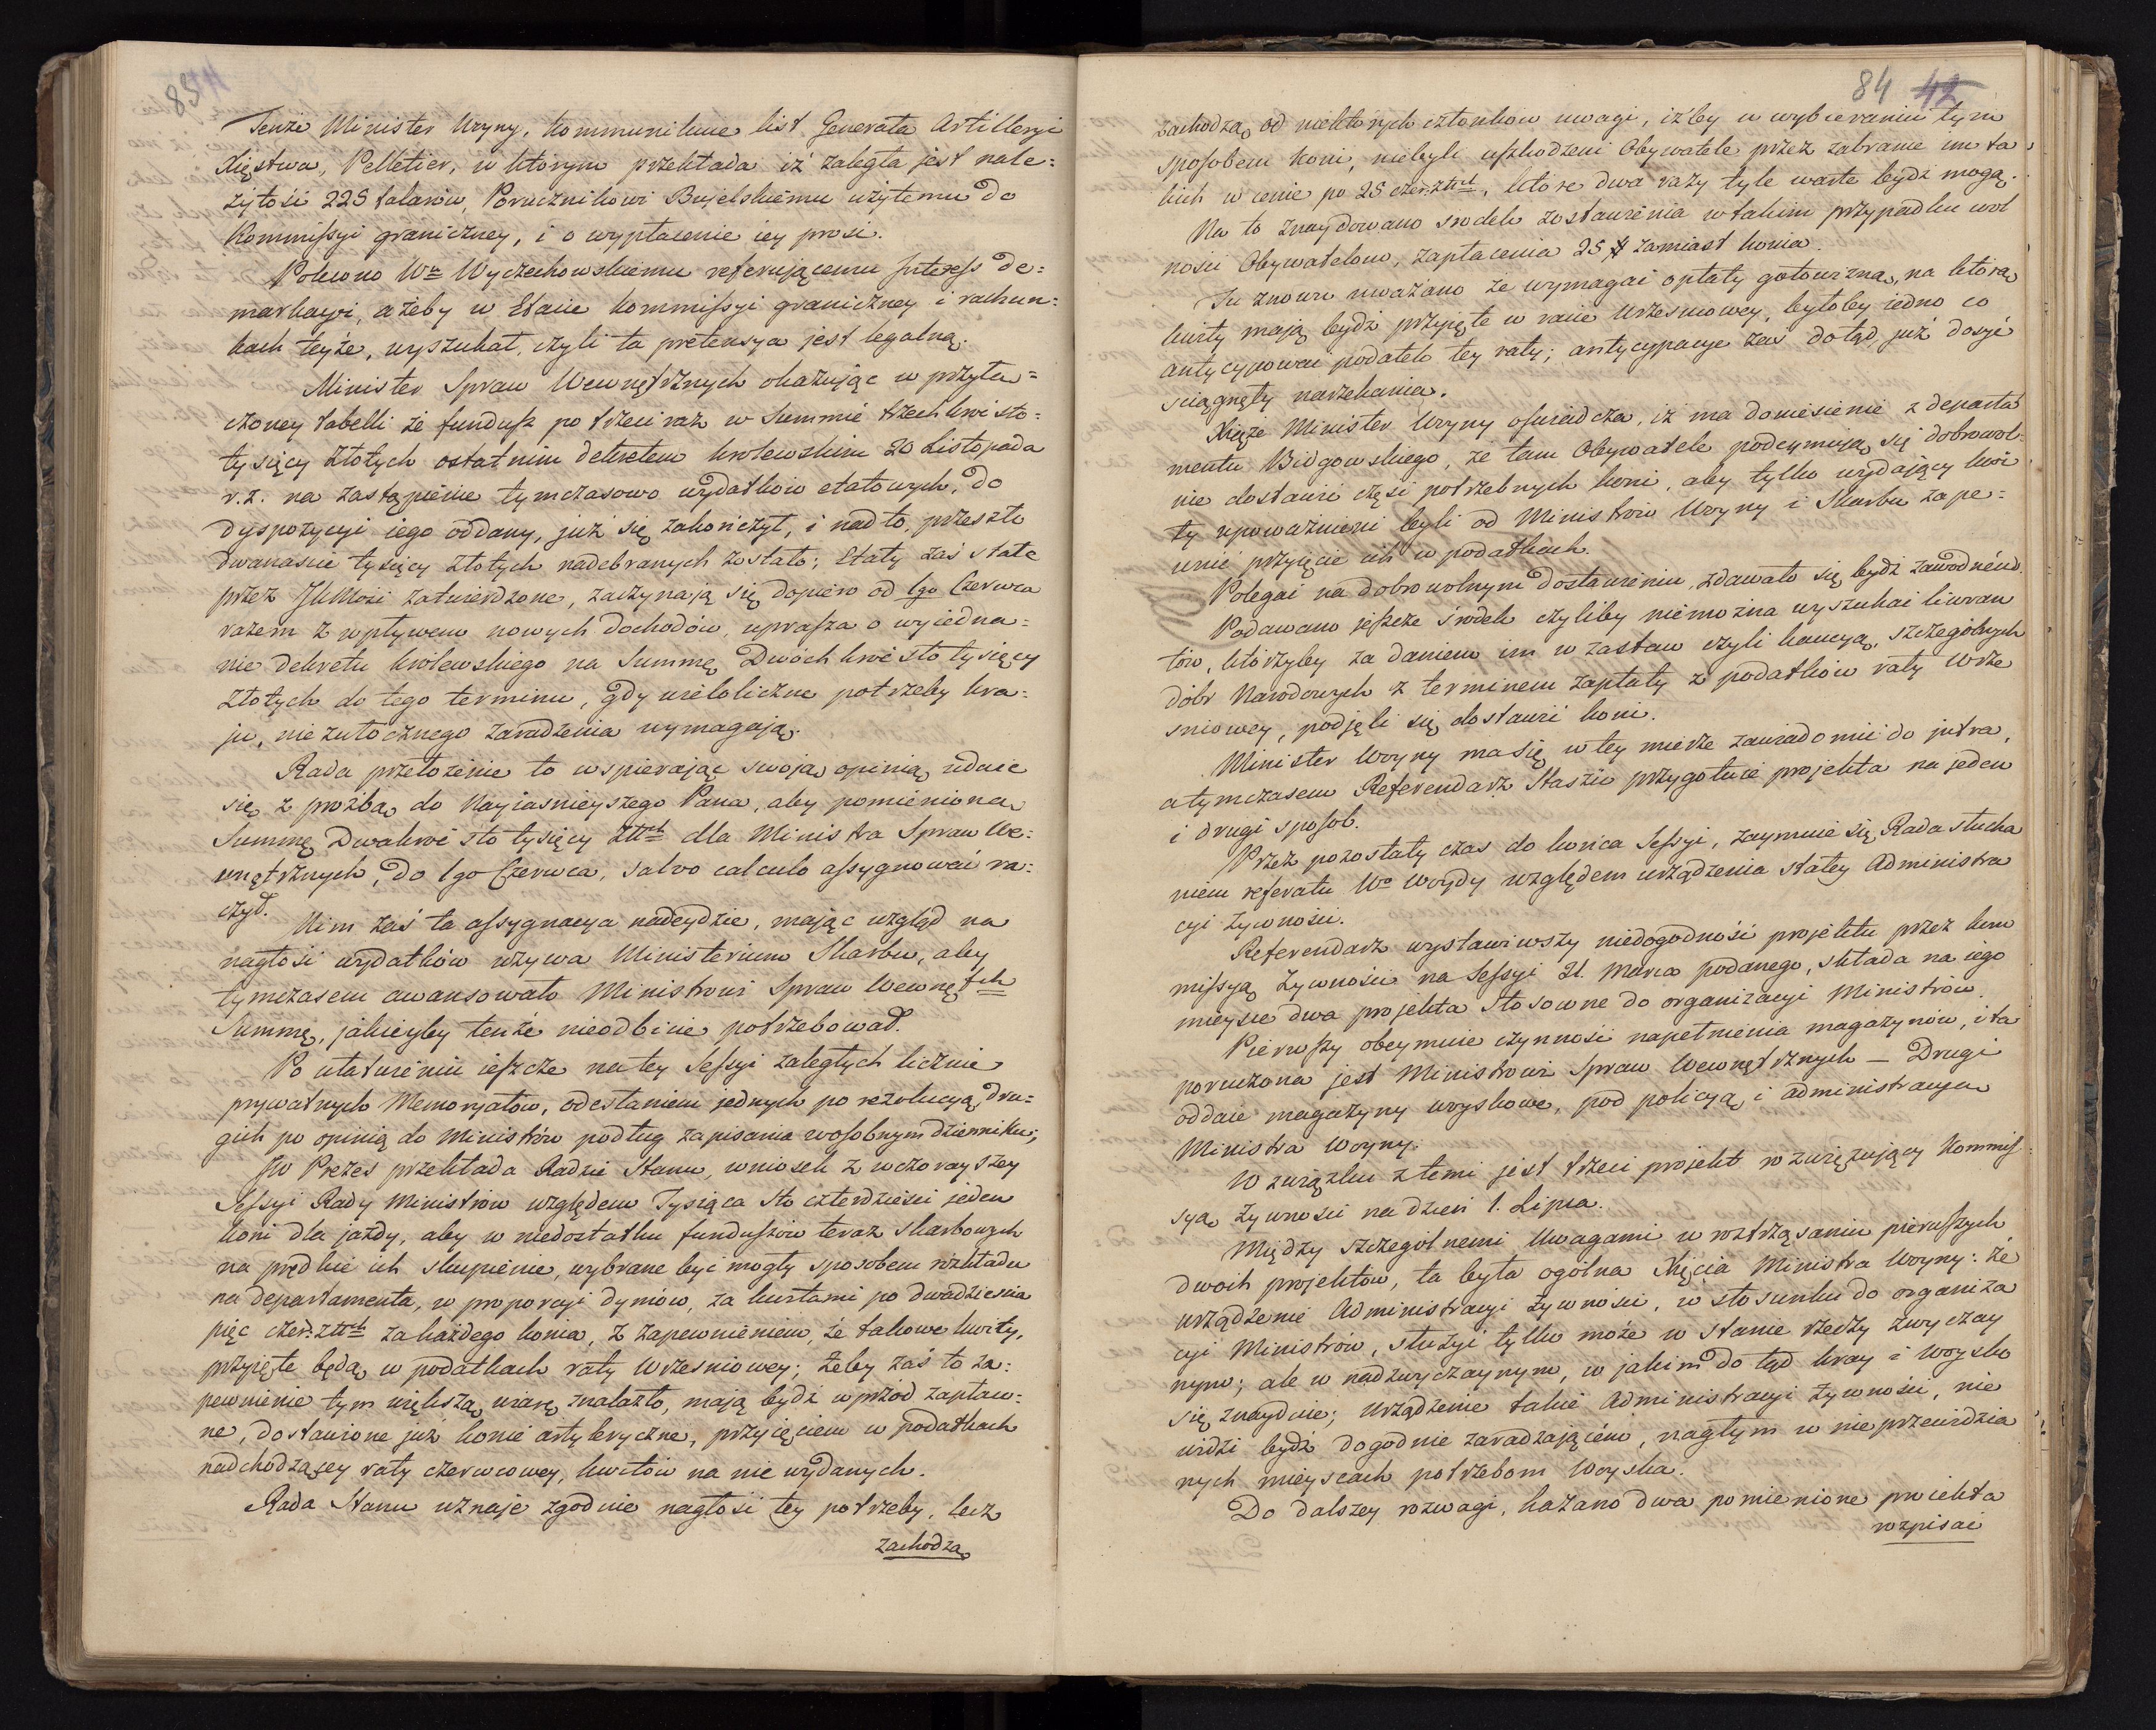 83
Tenże Minister Woyny, kommunikuie list Generała Artilleryi
Xięstwa, Pelletier, w którym przekłada iż zaległa jest nale=
żytość 225 talarów, Porucznikowi Bujelskiemu użytemu do
Kommissyi graniczney, i o wypłacenie iey prosi.
Polecono Wu Wyczechowskiemu referującemu Interess de=
markacyi, ażeby w Etacie Kommissyi graniczney i rachun=
kach teyże, wyszukał, czyli ta pretensya jest legalną.
Minister Spraw Wewnętrznych okazując w przyłą=
czoney tabelli że fundusz po trzeci raz w Summie trzechkroć sto=
tysięcy Złotych ostatnim dekretem królewskim 20 Listopada
r. z. na zastąpienie tymczasowo wydatków etatowych, do
dyspozycyi iego oddany, już się zakończył, i nadto, przeszło
dwanaście tysięcy złotych nadebranych zostało; Etaty zaś stałe
przez JKMość zatwierdzone, zaczynają się dopiero od 1go Czerwca
razem z wpływem nowych dochodów, uprasza o wyiedna=
nie dekretu królewskiego na Summę Dwóchkroć sto tysięcy
Złotych do tego terminu, gdy wieloliczne potrzeby kra=
ju, niezwłocznego zaradzenia wymagają.
Rada przełożenie to wspierając swoją opinią udaie
się z prozbą do Nayiaśnieyszego Pana, aby pomienioną
Summę Dwakroć sto tysięcy Złtch dla Ministra Spraw We=
wnętrznych, do 1go Czerwca, salvo calculo assygnować ra=
czył.
Nim zaś ta assygnacya nadeydzie, mając wzgląd na
nagłość wydatków wzywa Ministerium Skarbu, aby
tymczasem awansowało Ministrowi Spraw Wewnętch
Summę, jakieyby tenże nieodbicie potrzebował.
Po ułatwieniu ieszcze na tey Sessyi zaległych licznie
prywatnych Memoryałów, odesłaniem jednych po rezolucyą, dru=
gich po opinią do Ministrów podług zapisania w osobnym dzienniku;
JW Prezes przekłada Radzie Stanu, wniosek z wczorayszey
Sessyi Rady Ministrów względem Tysiąca sto czterdzieści jeden
koni dla jazdy, aby w niedostatku funduszów teraz skarbowych
na prędkie ich skupienie, wybrane być mogły sposobem rozkładu
na departamenta, w proporcyi dymów, za kwitami po dwadzieścia
pięć czer. złtch za każdego konia, z zapewnieniem, że takowe kwity,
przyięte będą w podatkach raty Wrześniowey; żeby zaś to za=
pewnienie tym większą wiarę znalazło, mają bydź wprzód zapłaco=
ne, dostawione już konie artyleryczne, przyięciem w podatkach
nadchodzącey raty czerwcowey, kwitów na nie wydanych.
Rada Stanu uznaje zgodnie nagłość tey potrzeby, lecz
zachodzą
84 42
zachodzą od niektórych członków uwagi, iżby w wybieraniu tym
sposobem koni, niebyli uszkodzeni Obywatele przez zabranie im ta
kich w cenie po 25 czer. złtch, które dwa razy tyle warte bydź mogą.
Na to znaydowano środek zostawienia w takim przypadku wol
ności Obywatelom, zapłacenia 25 # zamiast konia.
Tu znowu uważano że wymagać opłaty gotowizną, na którą
kwity mają bydź przyięte w racie Wrześniowey, byłoby iedno co
antycypować podatek tey raty; antycypacye zaś dotąd już dosyć
ściągnęły narzekania.
Xiąże Minister Woyny oświadcza, iż ma doniesienie z departa
mentu Bidgowskiego, że tam Obywatele podeymują się dobrowol=
nie dostawić część potrzebnych koni, aby tylko wydający kwi
ty upoważnieni byli od Ministrów Woyny i Skarbu zape=
wnić przyięcie ich w podatkach.
Polegać na dobrowolnym dostawieniu, zdawało się bydź zawodném.
Podawano jeszcze środek czyliby niemożna wyszukać liweran
tów, którzyby za daniem im w zastaw czyli kaucyą, szczególnych
dóbr Narodowych z terminem zapłaty z podatków raty Wrze
śniowey, podjęli się dostawić koni.
Minister Woyny ma się w tey mierze zawiadomić do jutra,
a tymczasem Referendarz Staszic przygotuie projekta na jeden
i drugi sposob.
Przez pozostały czas do końca Sessyi, zaymuie się Rada słucha
niem referatu Wo Woydy względem urządzenia stałey Administra
cyi żywności.
Referendarz wystawiwszy niedogodność projektu przez kom
missyą Żywności na Sessyi 21. Marca podanego, składa na iego
mieysce dwa projekta stosowne do organizacyi Ministrów.
Pierwszy obeymuie czynność napełnienia magazynów, i ta
poruczona jest Ministrowi Spraw Wewnętrznych — Drugi
oddaie magazyny woyskowe, pod policyą i administracyą
Ministra Woyny.
W związku z temi jest trzeci projekt rozwięzujący Kommis=
syą Żywności na dzień 1. Lipca.
Między szczególnemi Uwagami w roztrząsaniu pierwszych
dwóch projektów, ta była ogólna Xięcia Ministra Woyny: że
urządzenie Administracyi żywności, w stosunku do organiza
cyi Ministrów, służyć tylko może w stanie rzeczy zwyczay
nym; ale w nadzwyczaynym, w jakim dotąd kray i woysko
się znayduie; urządzenie takie Administracyi żywności, nie
widzi bydź dogodnie zaradzającém, nagłym w nieprzewidzia
nych mieyscach potrzebom Woyska.
Do dalszey rozwagi, kazano dwa pomienione proiekta
rozpisać